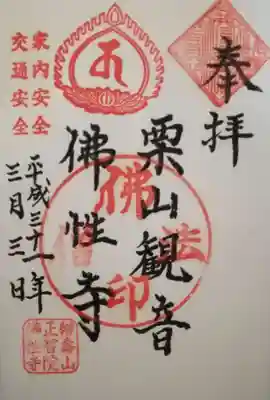 奉拝
栗山観音
佛性寺
家内安全
交通安全
平成三十一年
三月三日
佛法僧印
正智院